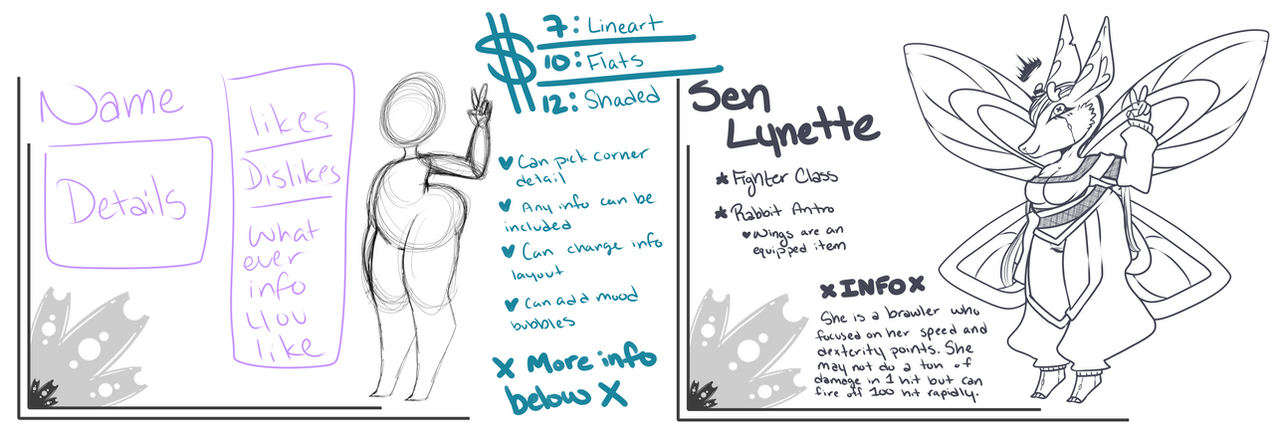 Name
Details
likes
Dislikes
what
ever
info
you
like
$
7: Lineart
10: Flats
12: Shaded
♥ Can pick corner
detail
♥ Any info can be
included
♥ Can change info
layout
♥ Can add mood
bubbles
X More info
below X
Sen
Lynette
* Fighter Class
* Rabbit Antro
♥ Wings are an
equipped item
X INFO X
She is a brawler who
focused on her speed and
dexterity points. She
may not do a ton of
damage in 1 hit but can
fire off 100 hit rapidly.